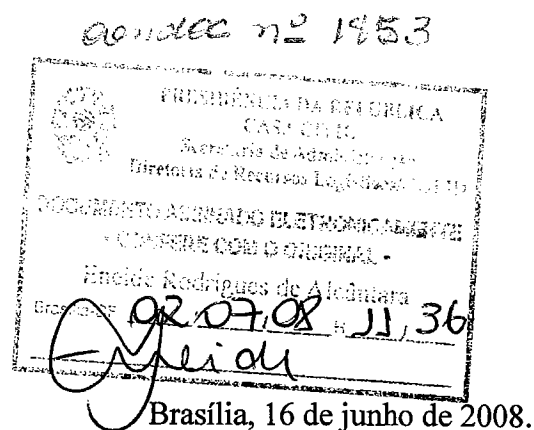 nº 1853
PRESIDÊNCIA DA REPÚBLICA
CASA CIVIL
Secretaria de Administração
Diretoria de Recursos Logísticos
DOCUMENTO ASSINADO ELETRONICAMENTE
- CONFERE COM O ORIGINAL -
Eneide Rodrigues de Alcântara
Brasília-DF 02,07,08 H 11,36
Eneide
Brasília, 16 de junho de 2008.